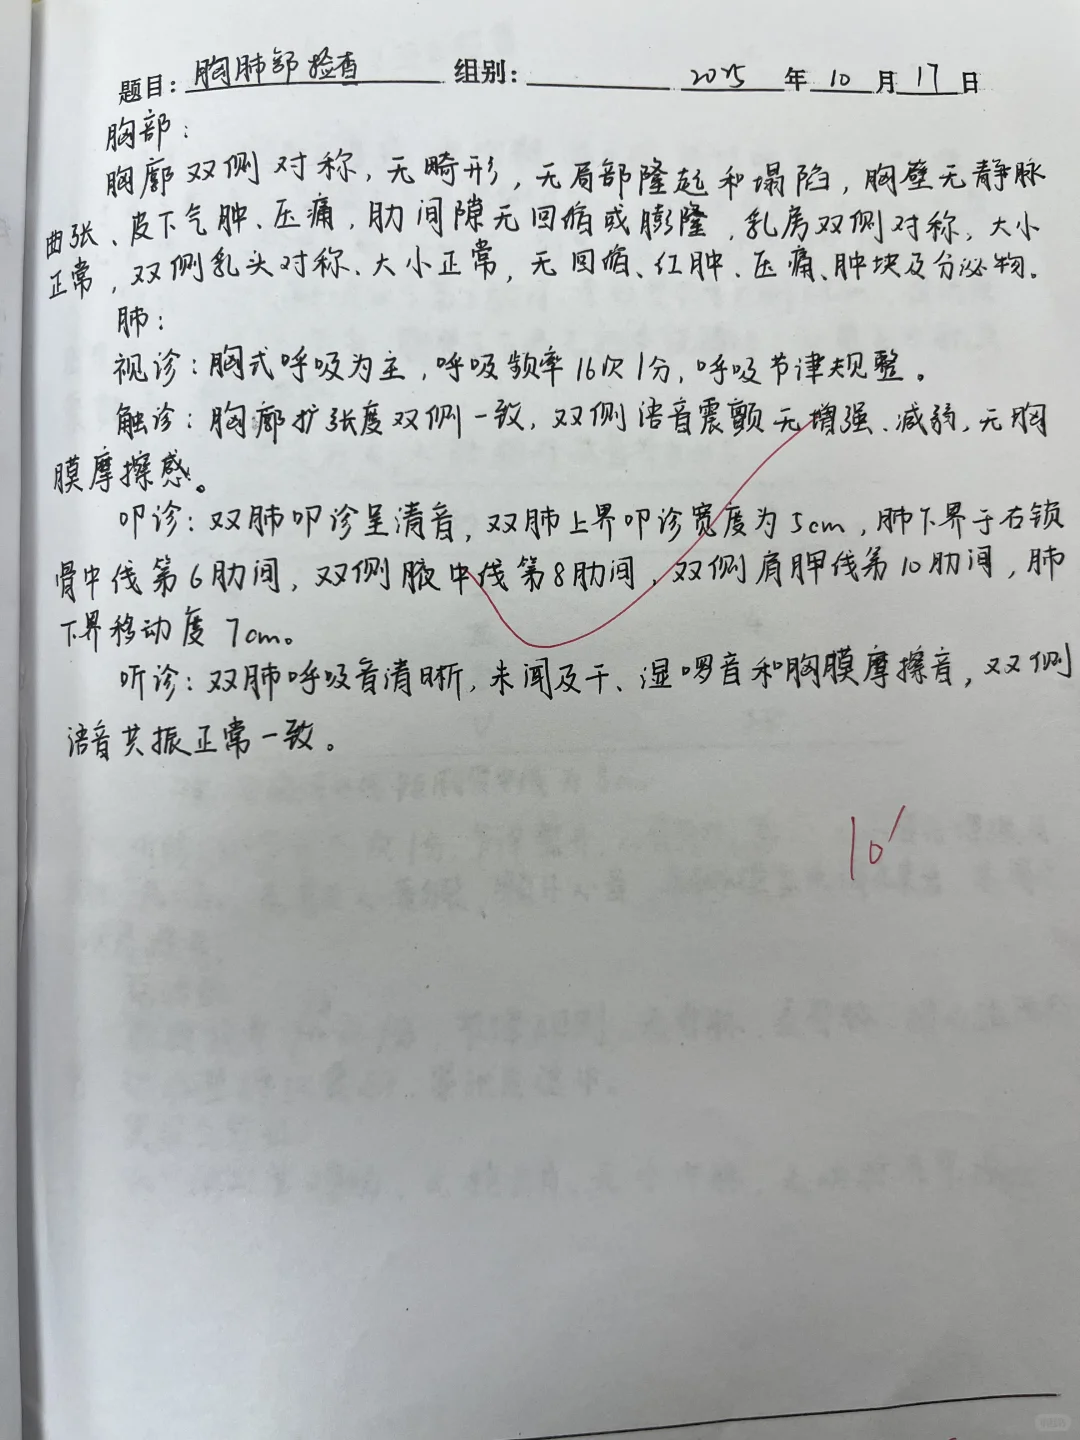 题目：胸肺部检查 组别： 2025 年 10 月 17 日
胸部：
胸廓双侧对称，无畸形，无局部隆起和塌陷，胸壁无静脉
曲张、皮下气肿、压痛，肋间隙无回缩或膨隆，乳房双侧对称，大小
正常，双侧乳头对称、大小正常，无回缩、红肿、压痛、肿块及分泌物.
肺：
视诊：胸式呼吸为主，呼吸频率16次/分，呼吸节律规整。
触诊：胸廓扩张度双侧一致，双侧语音震颤无增强、减弱，无胸
膜摩擦感。
叩诊：双肺叩诊呈清音，双肺上界叩诊宽度为5cm，肺下界于右锁
骨中线第6肋间，双侧腋中线第8肋间，双侧肩胛线第10肋间，肺
下界移动度7cm。
听诊：双肺呼吸音清晰，未闻及干、湿啰音和胸膜摩擦音，双侧
语音共振正常一致。
10'